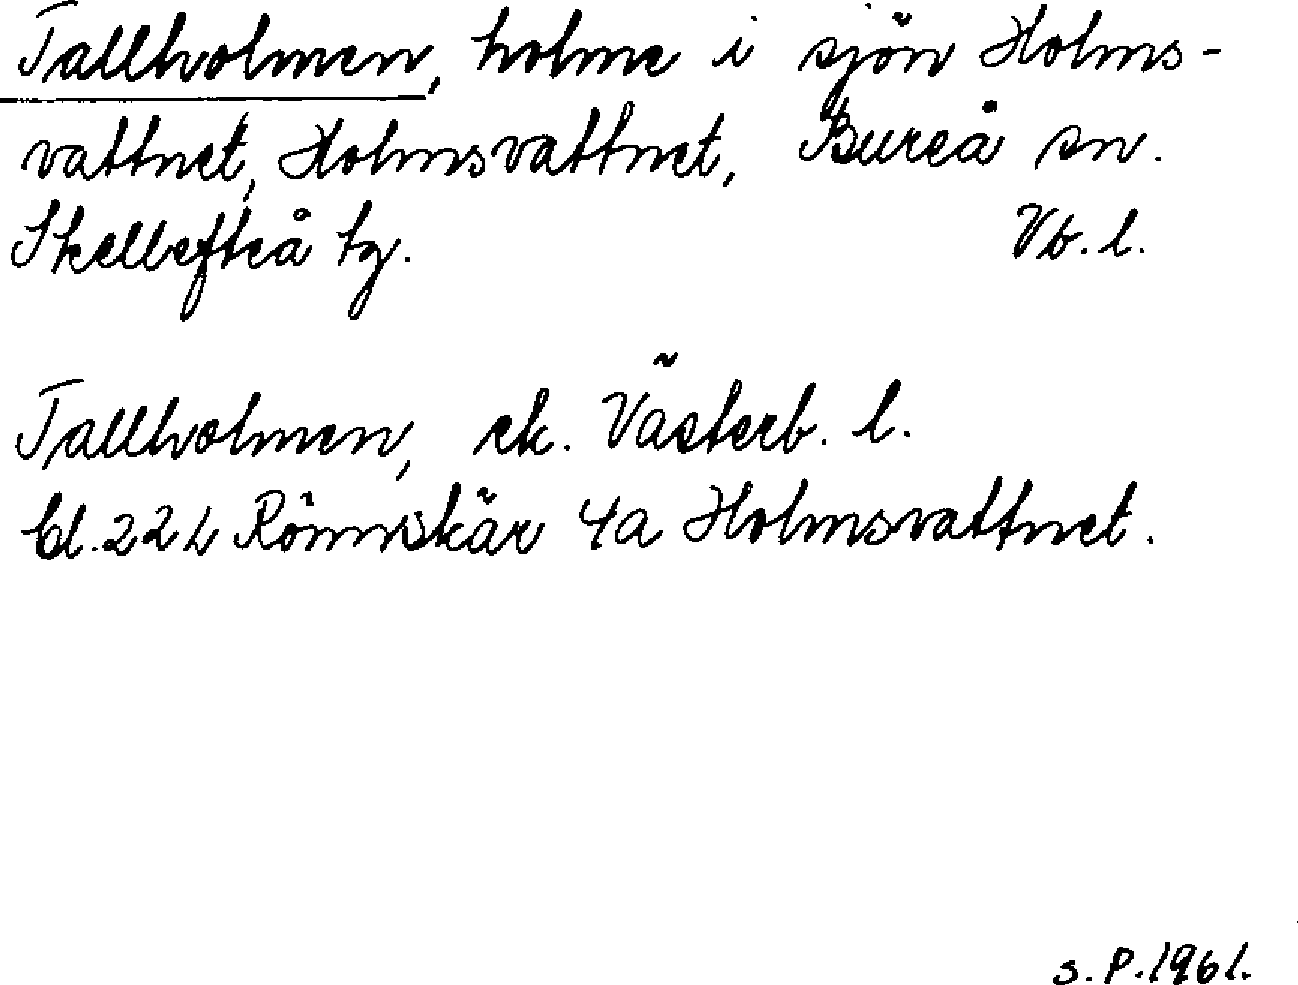 Tallholmen, holme i sjön Holms-
vattnet, Holmsvattnet, Bureå sn.
Skellefteå tg. Vb. l.
Tallholmen, ek. Västerb. l.
bl. 22 L Rönnskär 4a Holmsvattnet.
S. P. 1961.